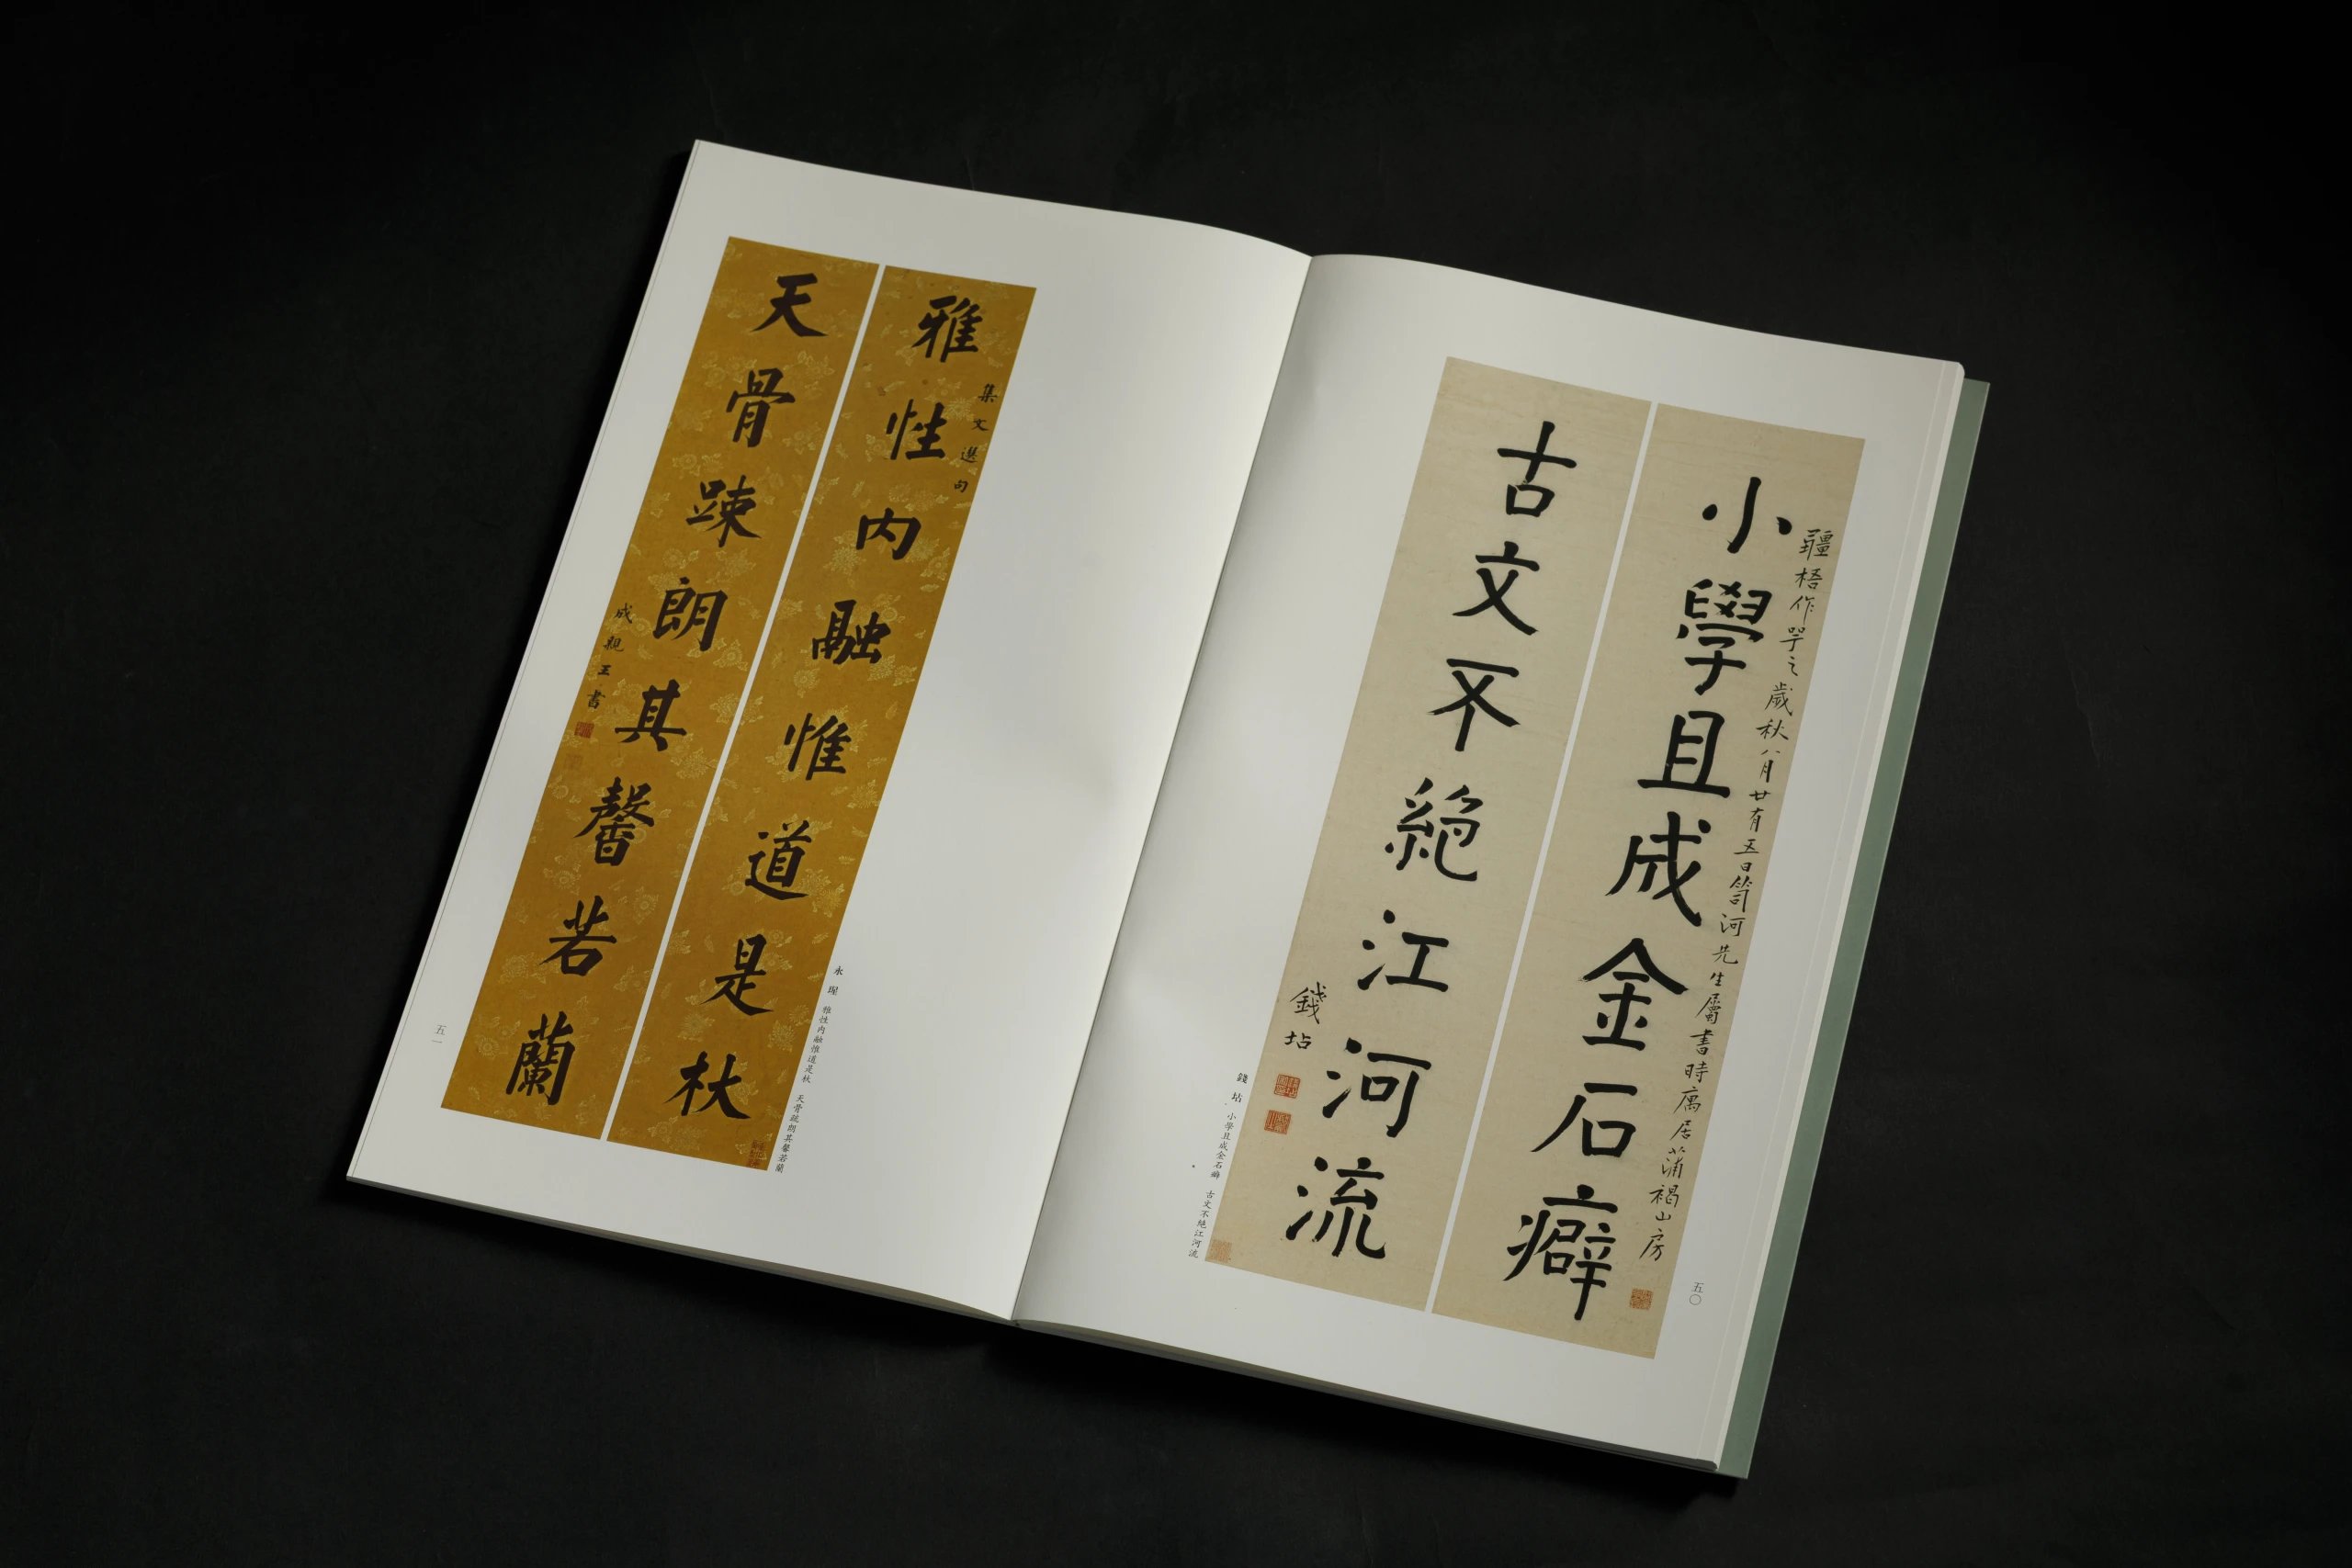 彊梧作噩之歲秋八月廿有五日笥河先生屬書時寓居蒲褐山房
小學且成金石癖
古文不絕江河流
錢坫
錢坫 小學且成金石癖 古文不絕江河流
五〇
集文選句
雅性内融惟道是杖
天骨疎朗其馨若蘭
成親王書
永瑆 雅性内融惟道是杖 天骨疏朗其馨若蘭
五一